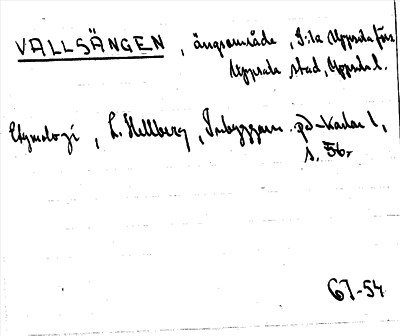 VALLSÄNGEN, ängsområde, f.la Uppsala förs
Uppsala stad, Uppsala l.
Etymologi, L. Hellberg, Inbyggarn. på -karlar I,
s. 56.
61-54